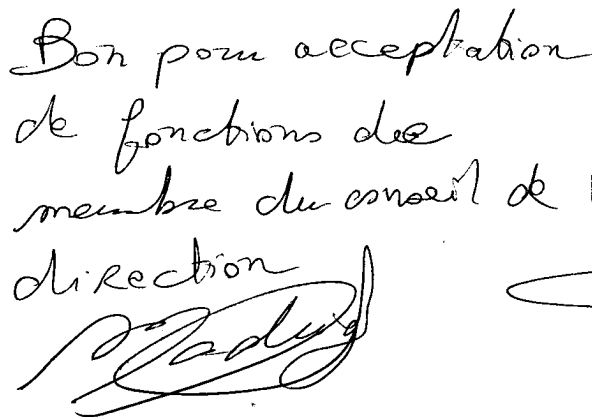 Bon pour acceptation
de fonctions de
membre du conseil de
direction